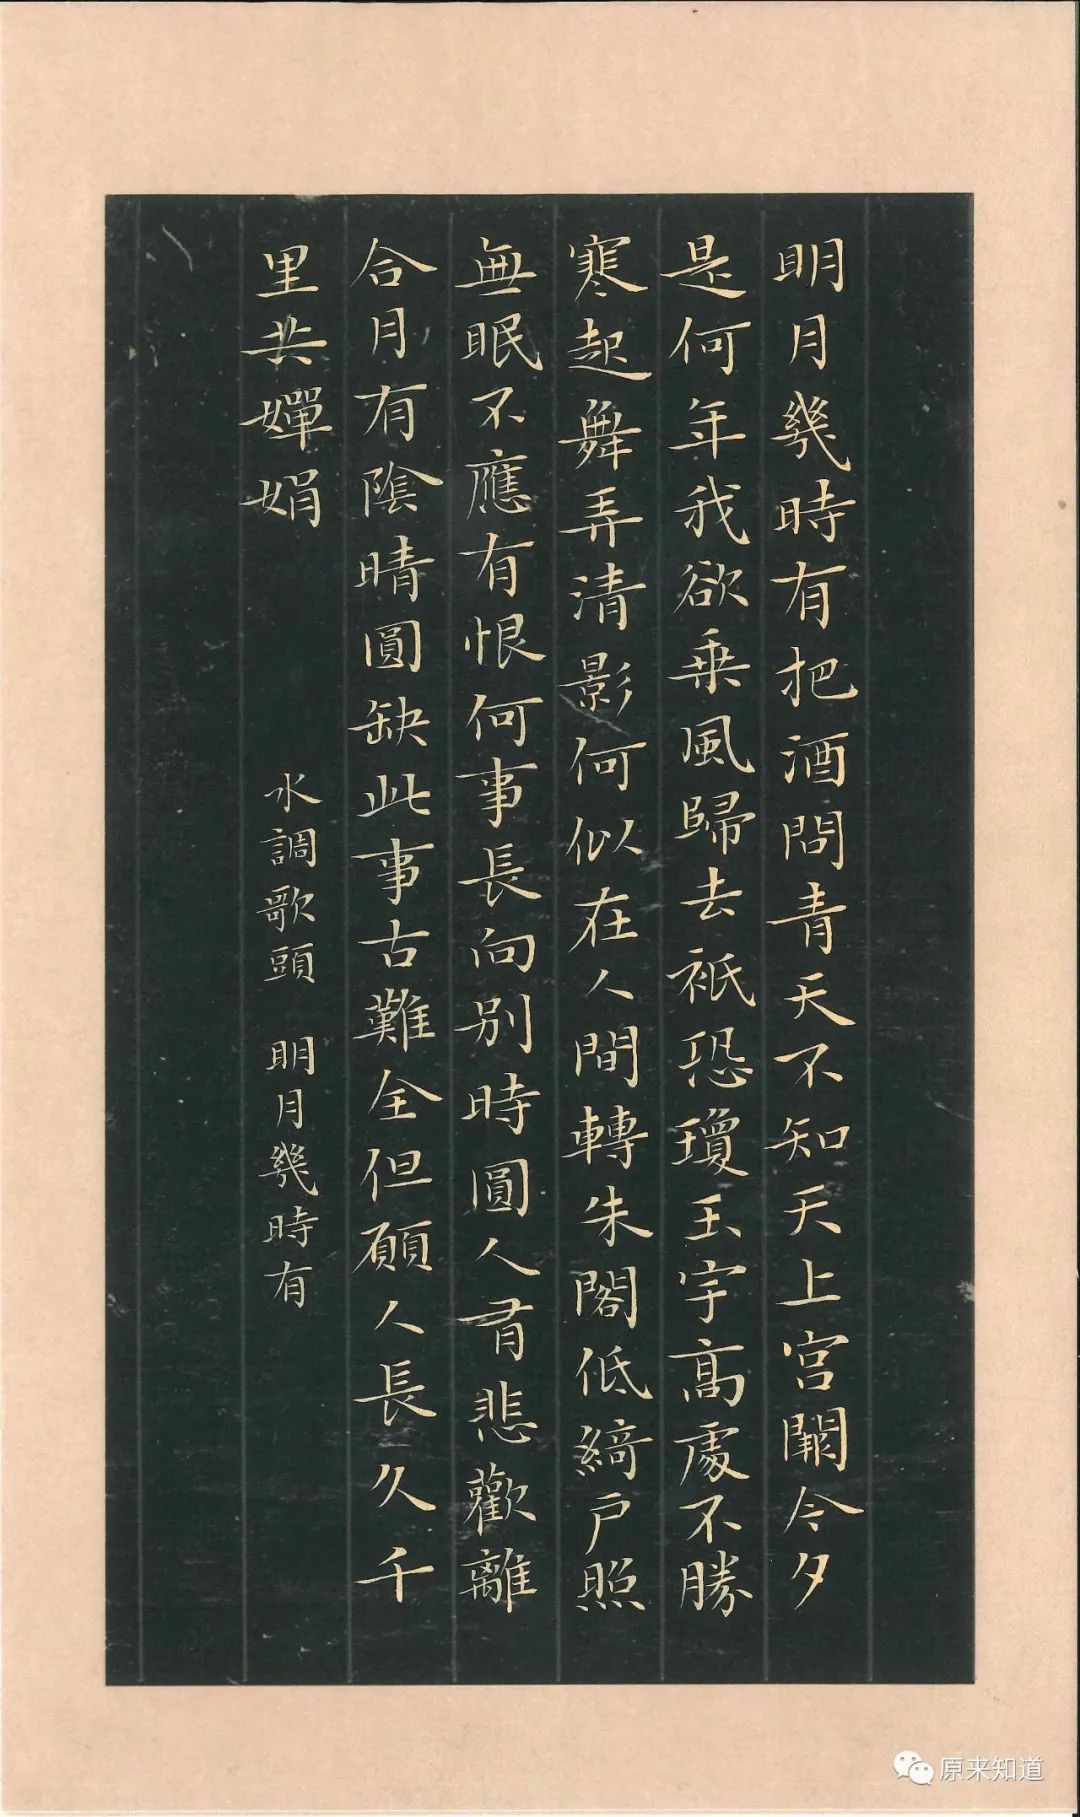 明月幾時有把酒問青天不知天上宮闕今夕
是何年我欲乗風歸去衹恐瓊玉宇高處不勝
寒起舞弄清影何似在人間轉朱閣低綺户照
無眠不應有恨何事長向别時圓人有悲歡離
合月有陰晴圓缺此事古難全但願人長久千
里共嬋娟
水調歌頭 明月幾時有
原来知道